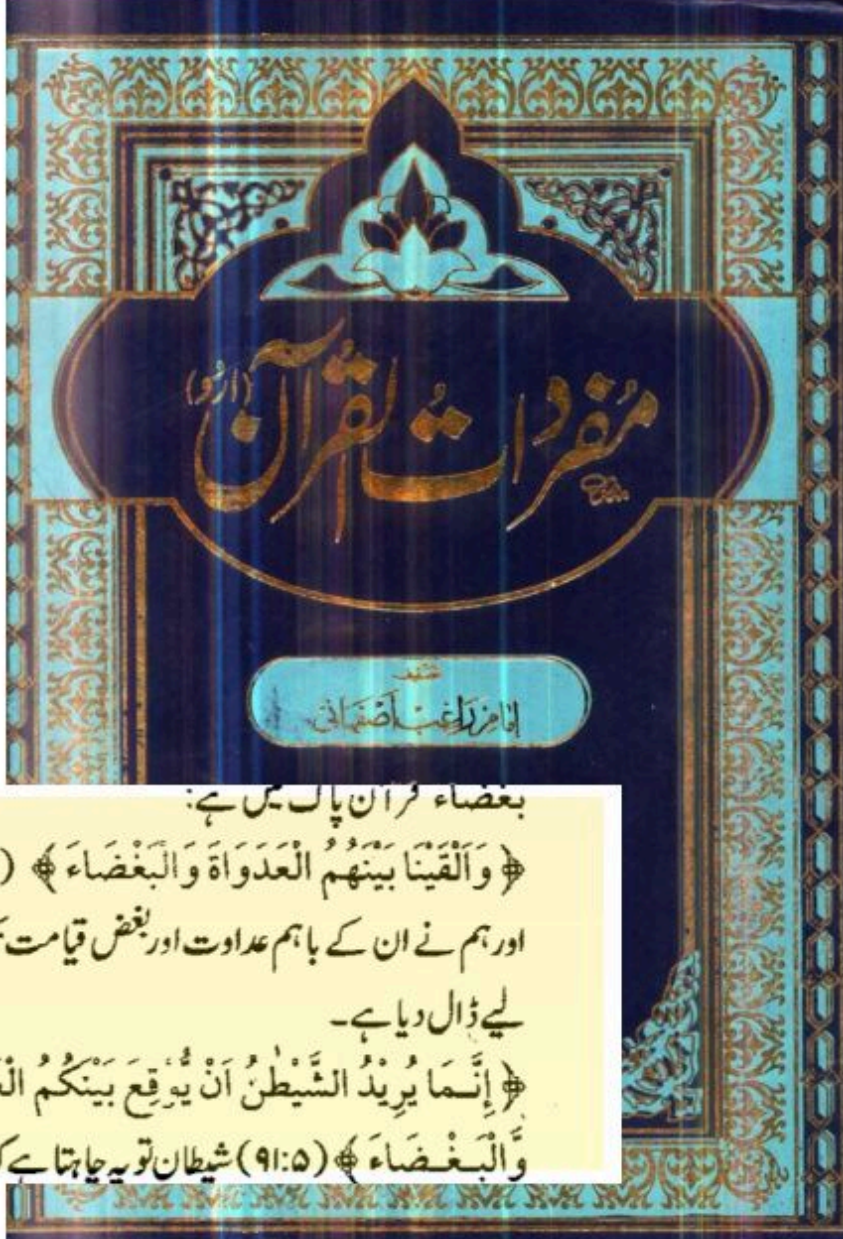 مُفردات القرآن (اردو)
تصنیف
امام راغب اصفہانی
بغضاء قرآن پاک میں ہے:
﴿وَاَلْقَیْنَا بَیْنَهُمُ الْعَدَوَاةَ وَالْبَغْضَاءَ﴾ (
اور ہم نے ان کے باہم عداوت اور بغض قیامت
لیے ڈال دیا ہے۔
﴿اِنَّمَا یُرِیْدُ الشَّیْطٰنُ اَنْ یُّوْقِعَ بَیْنَكُمُ
وَالْبَغْضَاءَ﴾ (۹۱:۵) شیطان تو یہ چاہتا ہے